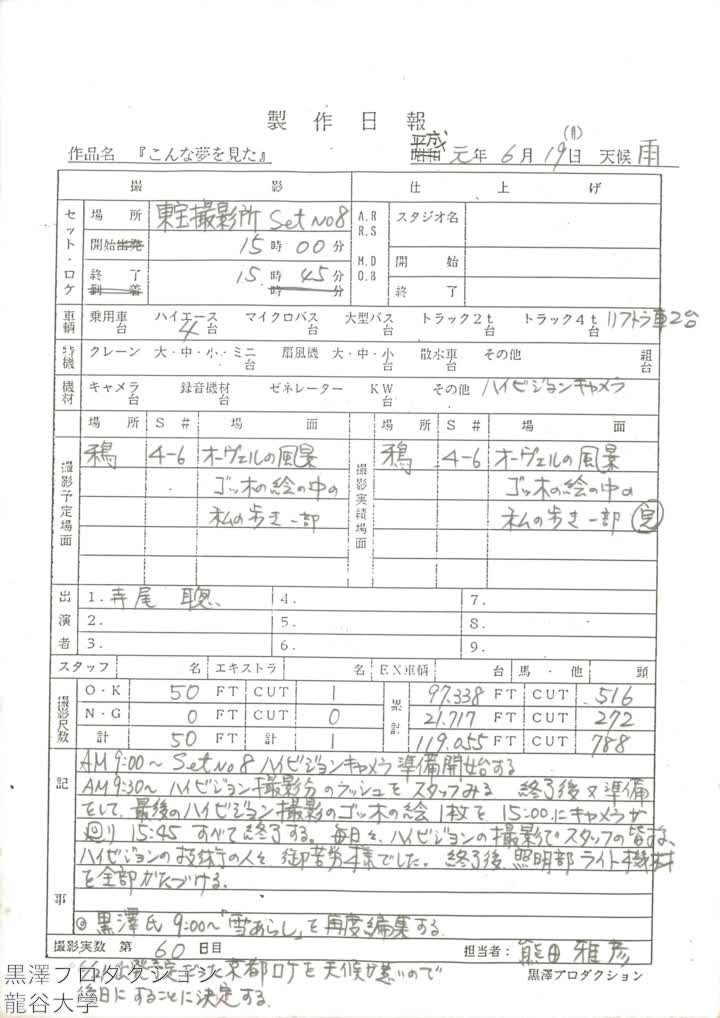 製作日報
作品名 『こんな夢を見た』 平成 昭和 元年 6月 19日 (月) 天候 雨
撮影 仕上げ
セット・ロケ 場所 東宝撮影所 Set No8 A.R R.S スタジオ名
開始出発 15時 00分 M.D D.B 開始
終了 15時 45分 終了
到着 時 分
車輌 乗用車 台 ハイエース 4台 マイクロバス 台 大型バス 台 トラック2t 台 トラック4t 台 リフトトラ車2台
特機 クレーン 大・中・小・ミニ 台 扇風機 大・中・小 台 散水車 台 その他 組 台
機材 キャメラ 台 録音機材 台 ゼネレーター 台 KW 台 その他 ハイビジョンキャメラ
場所 S# 場面 場所 S# 場面
撮影予定場面 鴉 4-6 オーヴェルの風景 撮影実績場面 鴉 4-6 オーヴェルの風景
ゴッホの絵の中の ゴッホの絵の中の
私の歩き一部 私の歩き一部 完
出演者 1.寺尾 聰 4. 7.
2. 5. 8.
3. 6. 9.
スタッフ 名 エキストラ 名 EX車輌 台 馬・他 頭
撮影尺数 O・K 50 FT CUT 1 累計 97.338 FT CUT 516
N・G 0 FT CUT 0 21.717 FT CUT 272
計 50 FT 計 1 119.055 FT CUT 788
記事
AM 9:00~ Set No8 ハイビジョンキャメラ準備開始する
AM 9:30~ ハイビジョン撮影分のラッシュをスタッフみる 終了後又準備
をして、最後のハイビジョン撮影のゴッホの絵1枚を15:00にキャメラが
廻り 15:45 すべて終了する。毎日々、ハイビジョンの撮影でスタッフの皆さん
ハイビジョンの技術の人々 御苦労様でした。終了後、照明部ライト機材
を全部かたづける。
◎黒澤氏 9:00~「雪あらし」を再度編集する
撮影実数 第 60日目 担当者:熊田雅彦
京都ロケを天候が悪いので
後日にすることに決定する。
黒澤プロダクション
黒澤プロダクション
龍谷大学